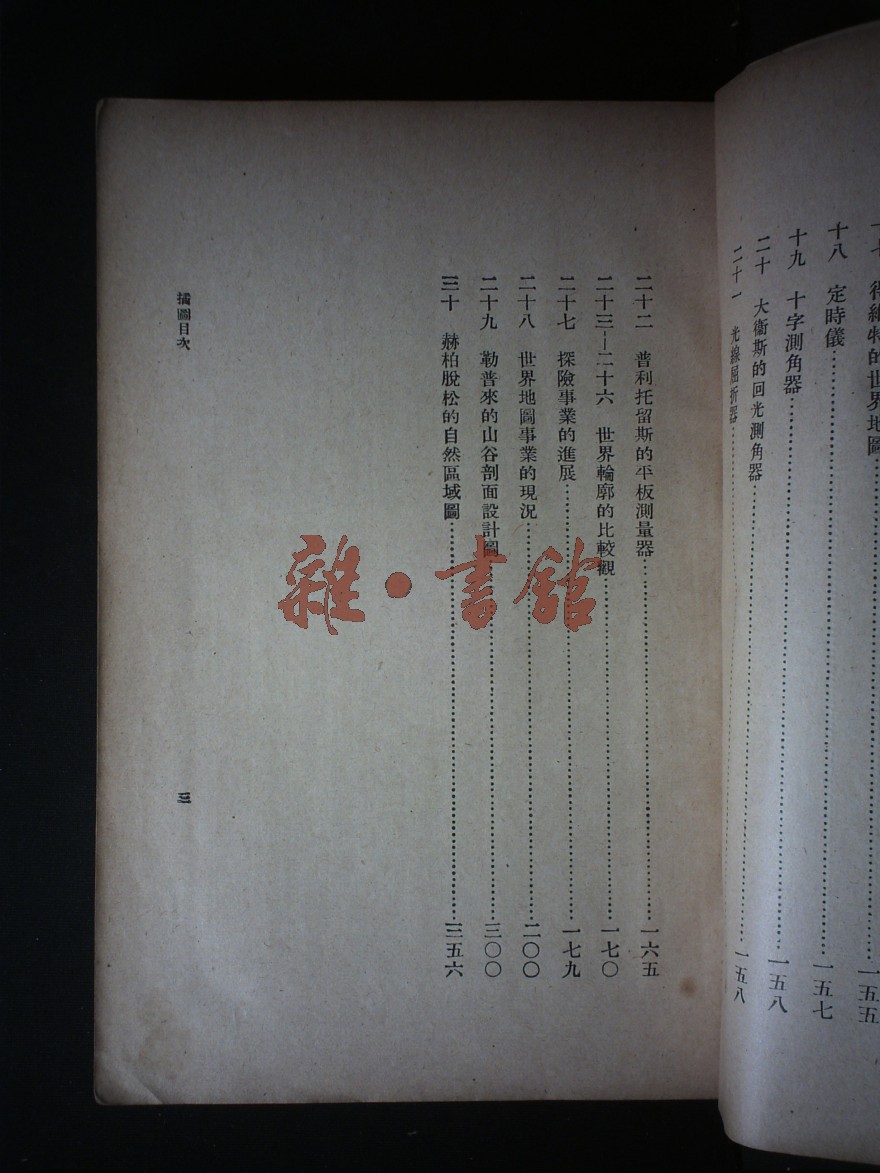 得維特的世界地圖……一五五
十八　定時儀……一五七
十九　十字測角器……一五八
二十　大衞斯的回光測角器
二十一　光線屈折器……一五八
二十二　普利托留斯的平板測量器……一六五
二十三—二十六　世界輪廓的比較觀……一七〇
二十七　探險事業的進展……一七九
二十八　世界地圖事業的現況……二〇〇
二十九　勒普來的山谷剖面設計圖……三〇〇
三十　赫柏脫松的自然區域圖……三五六
插圖目次
三
雜·書館